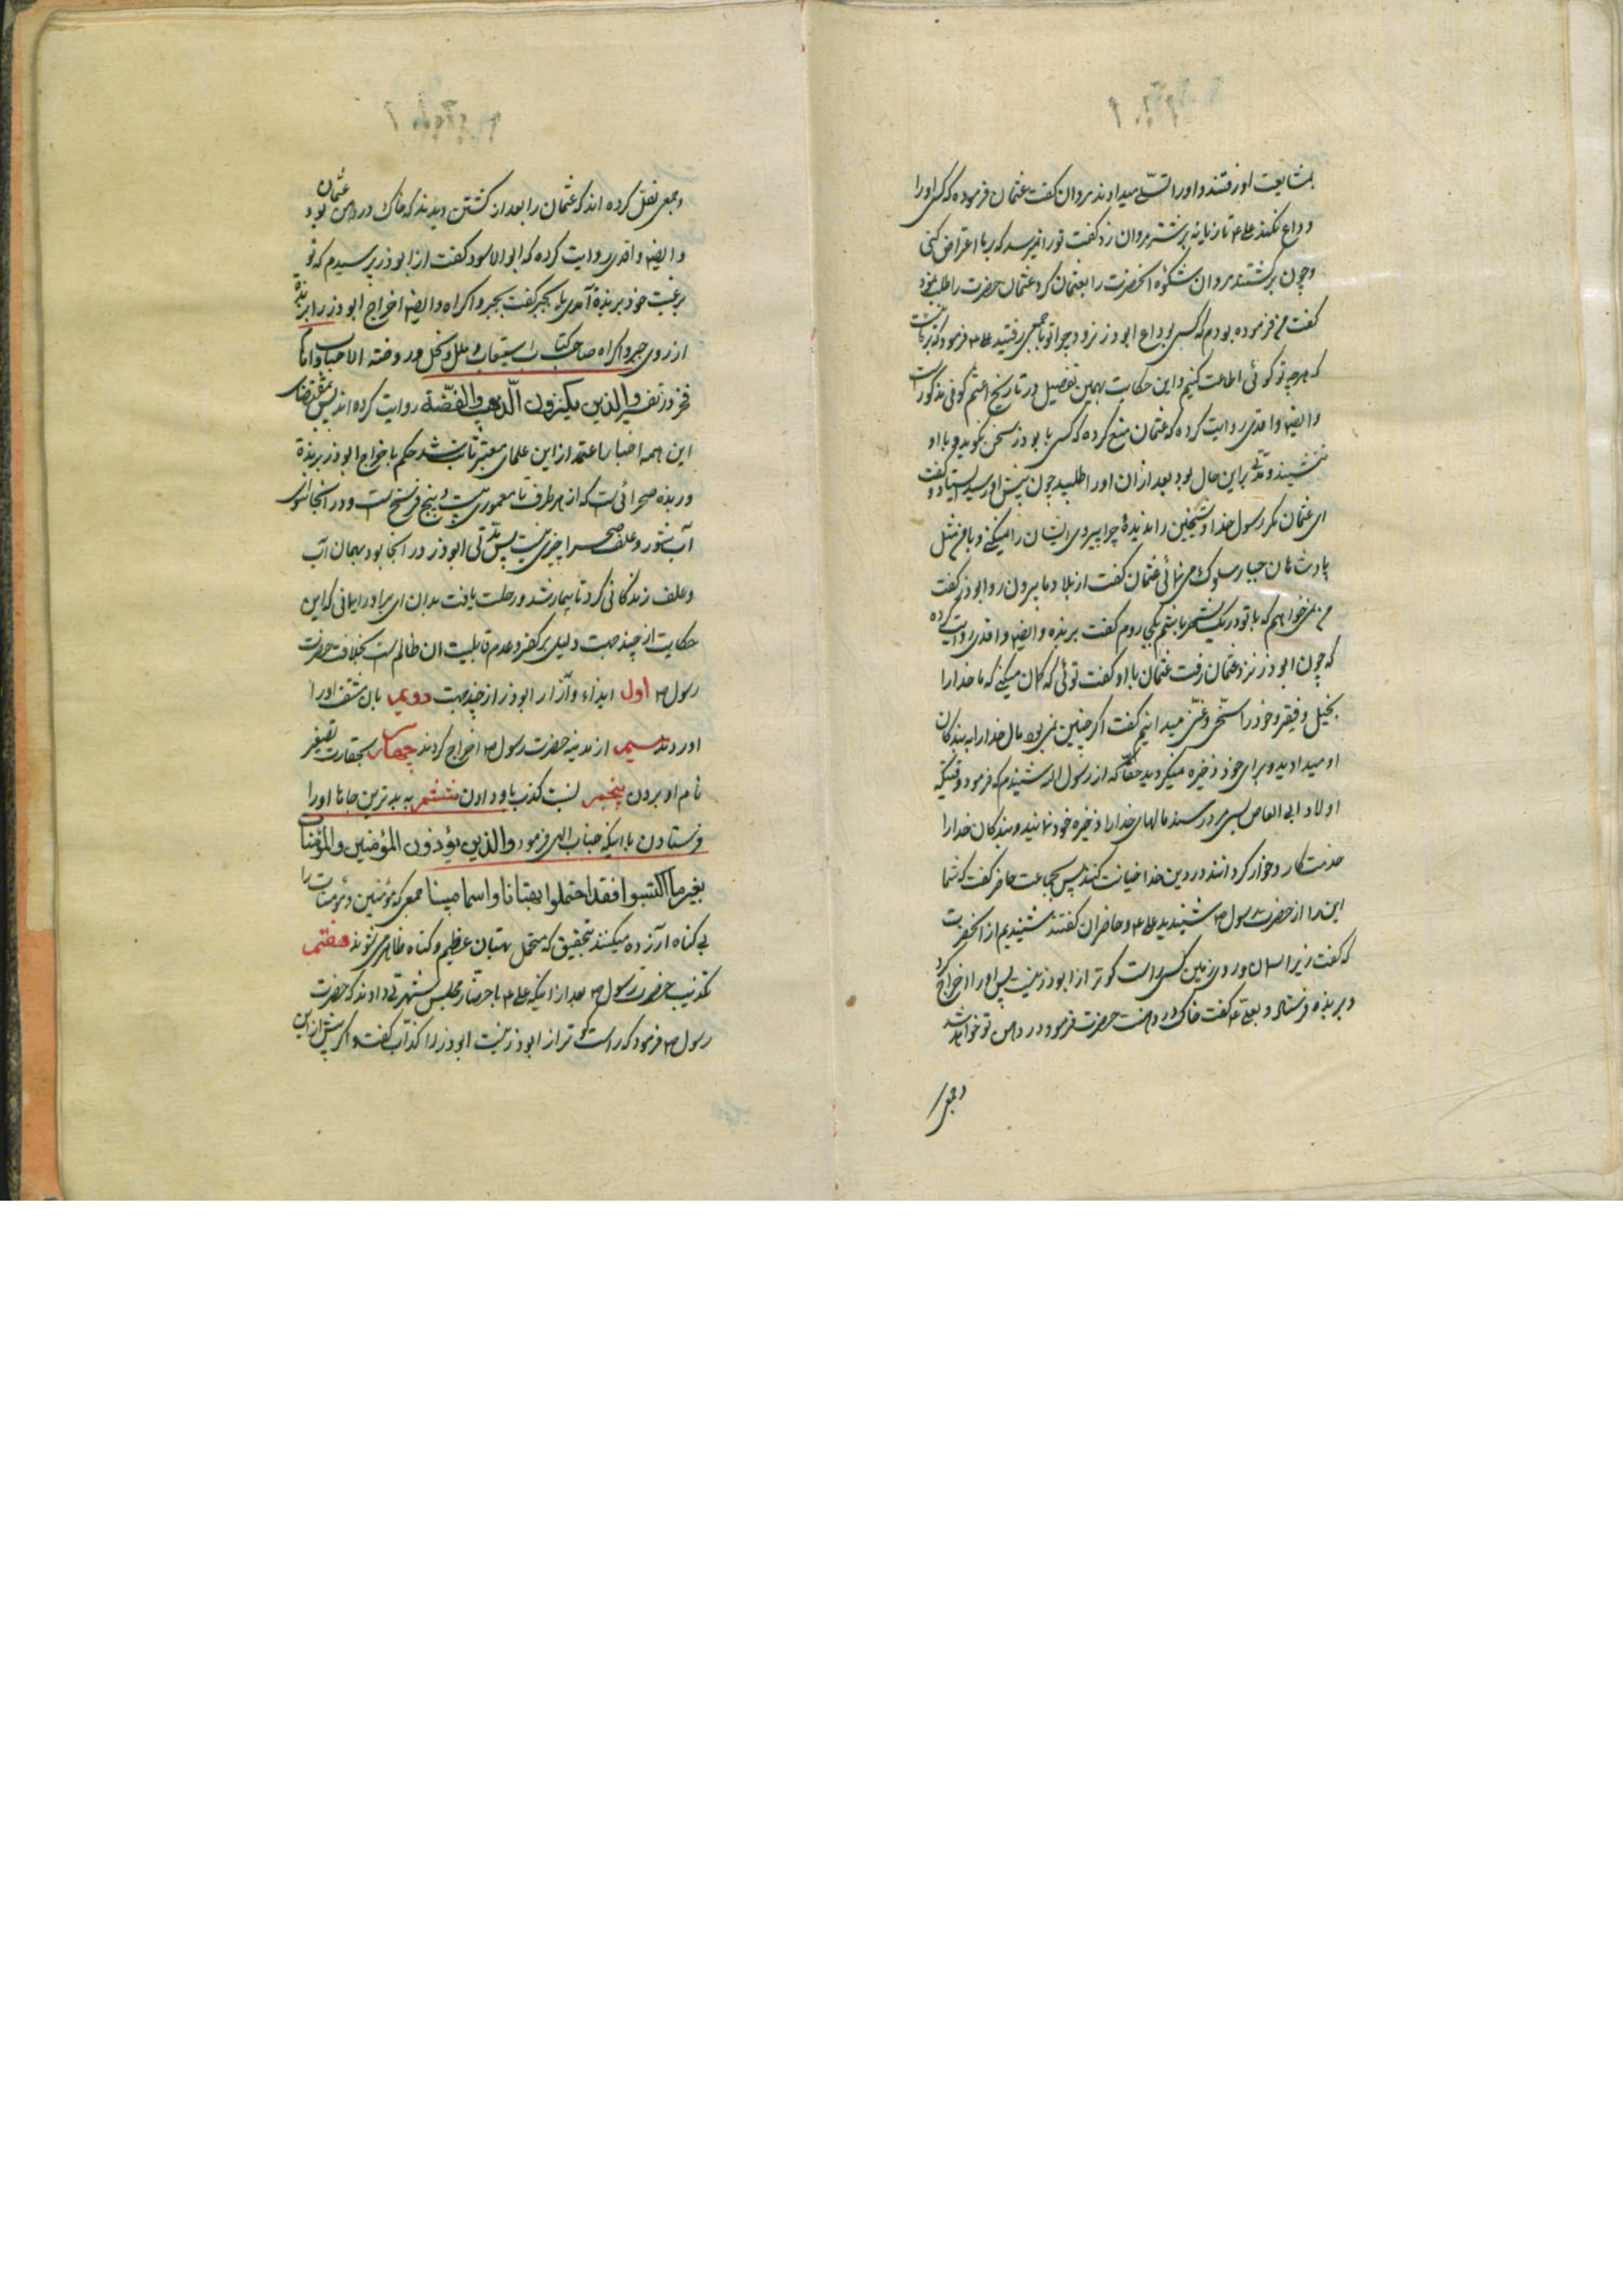 بمشایعت او رفتند و او را تسلّے میدادند مروان گفت عثمان فرموده که کسی او را
وداع نکند علی ع تازیانه بر شتر مروان زد گفت تو را نمیرسد که بر ما اعتراض کنی
و چون برگشتند مروان شکوه آنحضرت را بعثمان کرد عثمان حضرت را طلب نمود
گفت من فرموده بودم که کسی بوداع ابوذر نرود چرا تو با جمعی رفتید علی ع فرمود که بر ما نیست
که هر چه تو گوئی اطاعت کنیم و این حکایت بهمین تفصیل در تاریخ اعثم کوفی مذکور است
و ایضا واقدی روایت کرده که عثمان منع کرده که کسی با بوذر سخن نکوید و با او
ننشیند و مدّتی بر این حال بود بعد از ان او را طلبید چون پیش او رسید بایستاد و گفت
ای عثمان مگر رسول خدا و شیخین را ندیدهٔ چرا پیروی ایشان را نمیکنے و با من مثل
پادشاهان جبار سلوک می نمائی عثمان گفت از بلاد ما بیرون رو ابوذر گفت
من نمی خواهم که با تو در یک شهر باشم بکجا روم گفت بربذه و ایضا واقدی روایت کرده
که چون ابوذر نزد عثمان رفت عثمان با او گفت توئی که گمان میکنے که ما خدا را
بخیل و فقیر و خود را سخی و غنی میدانیم گفت اگر چنین نمی بود مال خدا را به بندگان
او میدادید و برای خود ذخیره نمیکردید حقّا که از رسول الله شنیدم که فرمود وقتیکه
اولاد ابی العاص بسی مرد رسند مالهای خدا را ذخیره خود نمایند و بندگان خدا را
خدمتکار و خوار کردانند و در دین خدا خیانت کنند پس بجماعت حاضر گفت که شما
این را از حضرت رسول ص شنیدید علی ع و حاضران گفتند شنیدیم از آنحضرت
که گفت زیر آسمان و روی زمین کسی راست گوتر از ابوذر نیست پس او را اخراج کرد
و بربذه فرستاد و بعلی ع گفت خاک در دهنت حضرت فرمود در دهن تو خواهد شد
و جمعی
و جمعی نقل کرده اند که عثمان را بعد از کشتن دیدند که خاک در دهن عثمان بود
و ایضا واقدی روایت کرده که ابو الاسود گفت از ابوذر پرسیدم که تو
برغبت خود بربذة آمدی یا بجبر گفت بجبر و اکراه و ایضا اخراج ابوذر را بربذة
از روی جبر و اکراه صاحب کتاب استیعاب و ملل و نحل و روضة الاحباب و امام
فخر در تفسیر والذین یکنزون الذّهب والفضّة روایت کرده اند پس بمقتضای
این همه اخبار با اعتماد از این علمای معتبر ثابت شد حکم باخراج ابوذر بربذة
و ربذه صحرائی است که از هر طرف تا معموری بیست و پنج فرسخ است و در آنجا سوای
آب شور و علف صحرا چیزی نیست پس مدّتی ابوذر در آنجا بود بهمان آب
و علف زندگانی کرد تا بیمار شد و رحلت یافت بدان ای برادر ایمانی که این
حکایت از چند جهت دلیل بر کفر و عدم قابلیت ان ظالم است بخلافت حضرت
رسول ص اول ایذاء و آزار ابوذر از چند جهت دویم بان مشقت او را
آوردند سیم از مدینه حضرت رسول ص اخراج کردند چهارم بحقارت تصغیر
نام او بردن پنجم نسبت کذب باو دادن ششم به بدترین جاها او را
فرستادن با اینکه جناب الهی فرمود والذین یؤذون المؤمنین والمؤمنات
بغیر ما اکتسبوا فقد احتملوا بهتانا و اسما مبینا جمعی که مؤمنین و مؤمنات را
بی گناه آزرده میکنند بتحقیق که متحمل بهتان عظیم و گناه ظاهر می شوند هفتم
تکذیب حضرت رسول ص بعد از اینکه علی ع با حضّار مجلس شهادت دادند که حضرت
رسول ص فرمود که راست گو تر از ابوذر نیست ابوذر را کذّاب گفت و اگر پیش از این